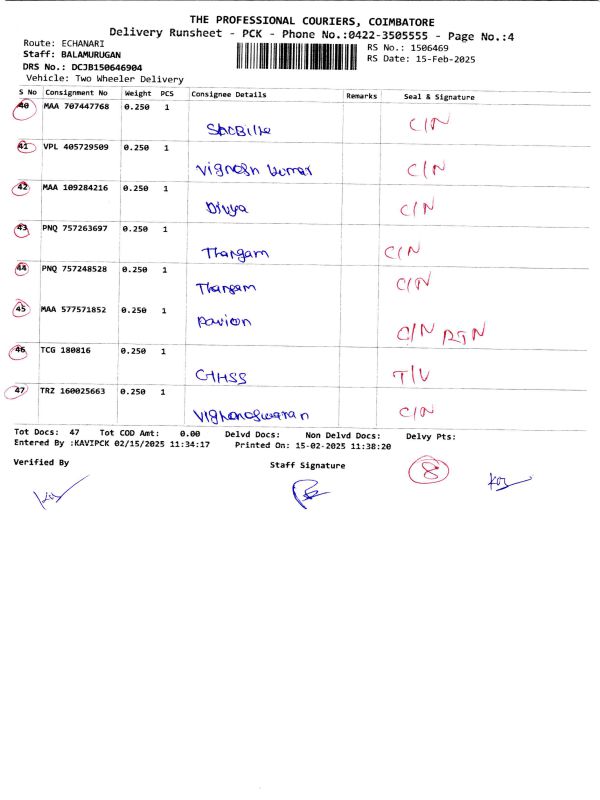 THE PROFESSIONAL COURIERS, COIMBATORE
Delivery Runsheet - PCK - Phone No.:0422-3505555 - Page No.:4
Route: ECHANARI
RS No.: 1506469
Staff: BALAMURUGAN
RS Date: 15-Feb-2025
DRS No.: DCJB150646904
Vehicle: Two Wheeler Delivery
S No Consignment No Weight PCS Consignee Details Remarks Seal & Signature
40 MAA 707447768 0.250 1
C/N
41 VPL 405729509 0.250 1
Vignesh kumar C/N
42 MAA 109284216 0.250 1
Divya C/N
43 PNQ 757263697 0.250 1
Thangam C/N
44 PNQ 757248528 0.250 1
Thangam C/N
45 MAA 577571852 0.250 1
pavion
C/N RTN
46 TCG 180816 0.250 1
GHSS T/V
47 TRZ 160025663 0.250 1
Vighaneswaran C/N
Tot Docs: 47 Tot COD Amt: 0.00 Delvd Docs: Non Delvd Docs: Delvy Pts:
Entered By :KAVIPCK 02/15/2025 11:34:17 Printed On: 15-02-2025 11:38:20
Verified By Staff Signature 8